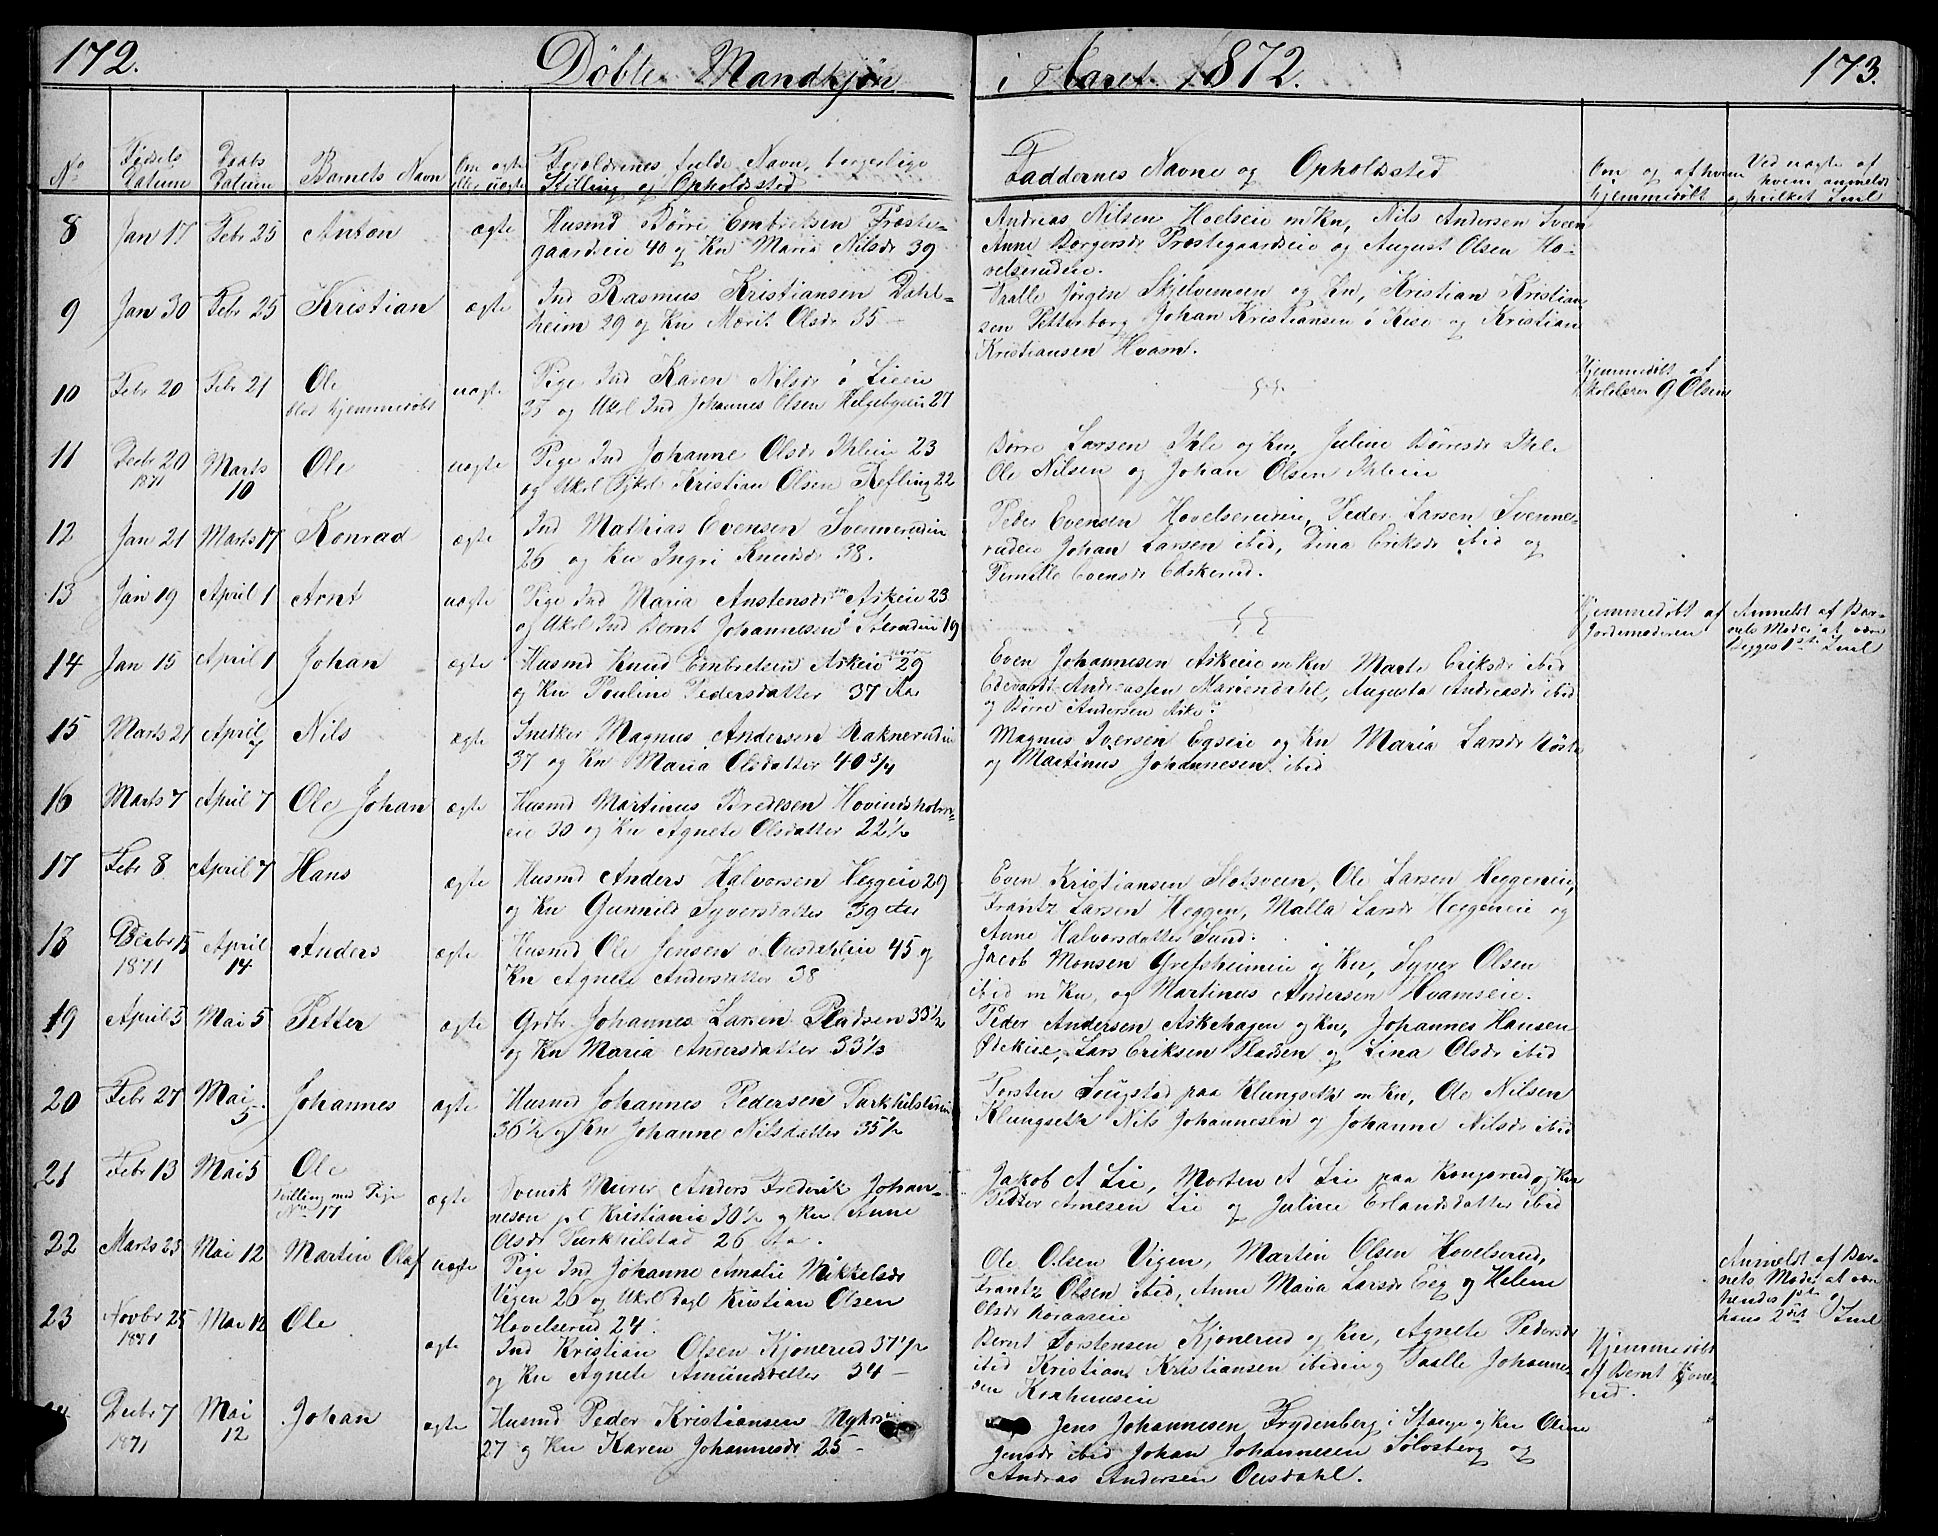 172.
Döbte Mandkjön
i Aaret 1872.
173.
No
Födsels Datum
Daabs Datum
Barnets Navn
Om ægte eller uægte
Forældrenes fulde Navn, borgerlige
Stilling og Opholdssted
Faddernes Navne og Opholdssted
Om og af hvem hjemmedöbt
Ved uægte af hvem anmeldt og hvilket Leiermaal
8 Jan 17 Febr 25 Anton ægte
Husmd Börre Embretsen Præste-
gaardseie 40 og Kn Maria Nilsdr 39
Andreas Nilsen Hoelseie m Kn, Nils Andersen Sveen
Anne Borgersdr Præstegaardseie og August Olsen Ho-
velserudeie.
9 Jan 30 Febr 25 Kristian ægte
Ind Rasmus Kristiansen Dahl-
heim 29 og Kn Marit Olsdr 35 –
Paalle Jörgen Skjelvemoen og Kn, Kristian Kristian
sen Petterborg Johan Kristiansen ö Kise og Kristian
Kristiansen Hvam.
10 Febr 20 Febr 21 Ole
blot hjemmedöbt uægte
Pige Ind Karen Nilsdr ö Lieeie
35 og Ukrl Ind Johannes Olsen Helgebyeie 27
Hjemmedöbt af
Skolelærer G Olsen
11 Decbr 20
1871 Marts
10 Ole uægte
Pige Ind Johanne Olsdr Ihleie 23
og Ukrl Kristian Olsen Refling 22
Börre Larsen Ihle og Kn, Juline Börresdr Ihle
Ole Nilsen og Johan Olsen Ihleie
12 Jan 21 Marts 17 Konrad ægte
Ind Mathias Evensen Svennerudeie
26 og Kn Ingri Knudsdr 38.
Peder Evensen Hovelserudeie, Peder Larsen Svenne-
rudeie Johan Larsen ibid, Dina Eriksdr ibid og
Pernille Evensdr Edskerud.
13 Jan 19 April 1 Arnt uægte
Pige Ind Maria Anstensdr Askeie 23
og Ukrl Ind Bernt Johannesen 19
Hjemmedöbt af
Jordemoderen
Anmeldt af Bar-
nets Moder at være
Begges 1ste Leiml
14 Jan 15 April 1 Johan ægte
Husmd Knud Embretsen Askeie 29
og Kn Pauline Pedersdatter 37 Aar
Even Johannesen Askeie m Kn Marte Eriksdr ibid
Edevardt Andreassen Mariendahl, Augusta Andreasdr ibid
og Börre Andersen Aske
15 Marts 21 April
7 Nils ægte
Snedker Magnus Andersen Raknerudeie
37 og Kn Maria Olsdatter 40 3/4
Magnus Iversen Egseie og Kn Maria Larsdr
og Martinus Johannesen ibid
16 Marts 7 April 7 Ole Johan ægte
Husmd Martinus Bredesen Hovindsholm-
eie 30 og Kn Agnete Olsdatter 22 1/2
17 Febr 8 April 7 Hans ægte
Husmd Anders Halvorsen Heggeie 29
og Kn Gunnild Syversdatter 39 Aar
Even Kristiansen Slotsveen, Ole Larsen Heggeneie,
Frantz Larsen Heggen, Malla Larsdr Heggeneie og
Anne Halvorsdatter Sund.
18 Decbr 15
1871 April
14 Anders ægte
Husmd Ole Jensen Ousdahleie 45 og
Kn Agnete Andersdatter 38
Jacob Monsen Grefsheimeie og Kn, Syver Olsen
ibid m Kn, og Martinus Andersen Hvamseie.
19 April 5 Mai 5 Petter ægte
Grdbr Johannes Larsen Pladsen 33 1/2
og Kn Maria Andersdatter 33 1/2
Peder Andersen Askehagen og Kn, Johannes Hansen
Ödekeie, Lars Eriksen Pladsen og Lina Olsdr ibid
20 Febr 27 Mai
5 Johannes ægte
Husmd Johannes Pedersen Turkhilstadeie
36 1/2 og Kn Johanne Nilsdatter 35 1/2
Torsten Sougstad paa Klungseth m Kn, Ole Nilsen
Klungseth Nils Johannesen og Johanne Nilsdr ibid
21 Febr 13 Mai 5 Ole
Tvilling med Pige
No 17 ægte
Svensk Murer Anders Frederik Johan-
neson pt Kristiania 30 1/2 og Kn Anne
Olsdr Turkhilstad 26 Aar.
Jakob A Lie, Morten A Lie paa Kongsrud og Kn
Petter Arnesen Lie og Juline Erlandsdatter ibid
22 Marts 23 Mai 12 Martin Olaf uægte
Pige Ind Johanne Amalie Mikkelsdr
Vigen 26 og Ukrl Dagl Kristian Olsen
Hovelserud 24.
Ole Olsen Vigen, Martin Olsen Hovelserud,
Frantz Olsen ibid, Anne Maria Larsdr Eeg og Helene
Olsdr Koraaseie
Anmeldt af Bar-
nets Moder at være
hendes 1ste og
hans 2det Leiml
23 Novbr 25
1871 Mai 12 Ole ægte
Ind Kristian Olsen Kjonerud 37 1/2
og Kn Agnete Amundsdatter 34 –
Bernt Torstensen Kjonerud og Kn, Agnete Pedersdr
ibid Kristian Kristiansen ibideie og Paalle Johanne-
sen
Hjemmedöbt
af Bernt Kjone-
rud.
Decbr 7
1871 Mai
12 Johan ægte
Husmd Peder Kristiansen Myhrs
27 og Kn Karen Johannesdr 25 –
Jens Johannesen Frydenberg i Stange og Kn Oline
Jensdr ibid Johan Johannesen Sölvsberg og
Andras Andersen Ousdahl.